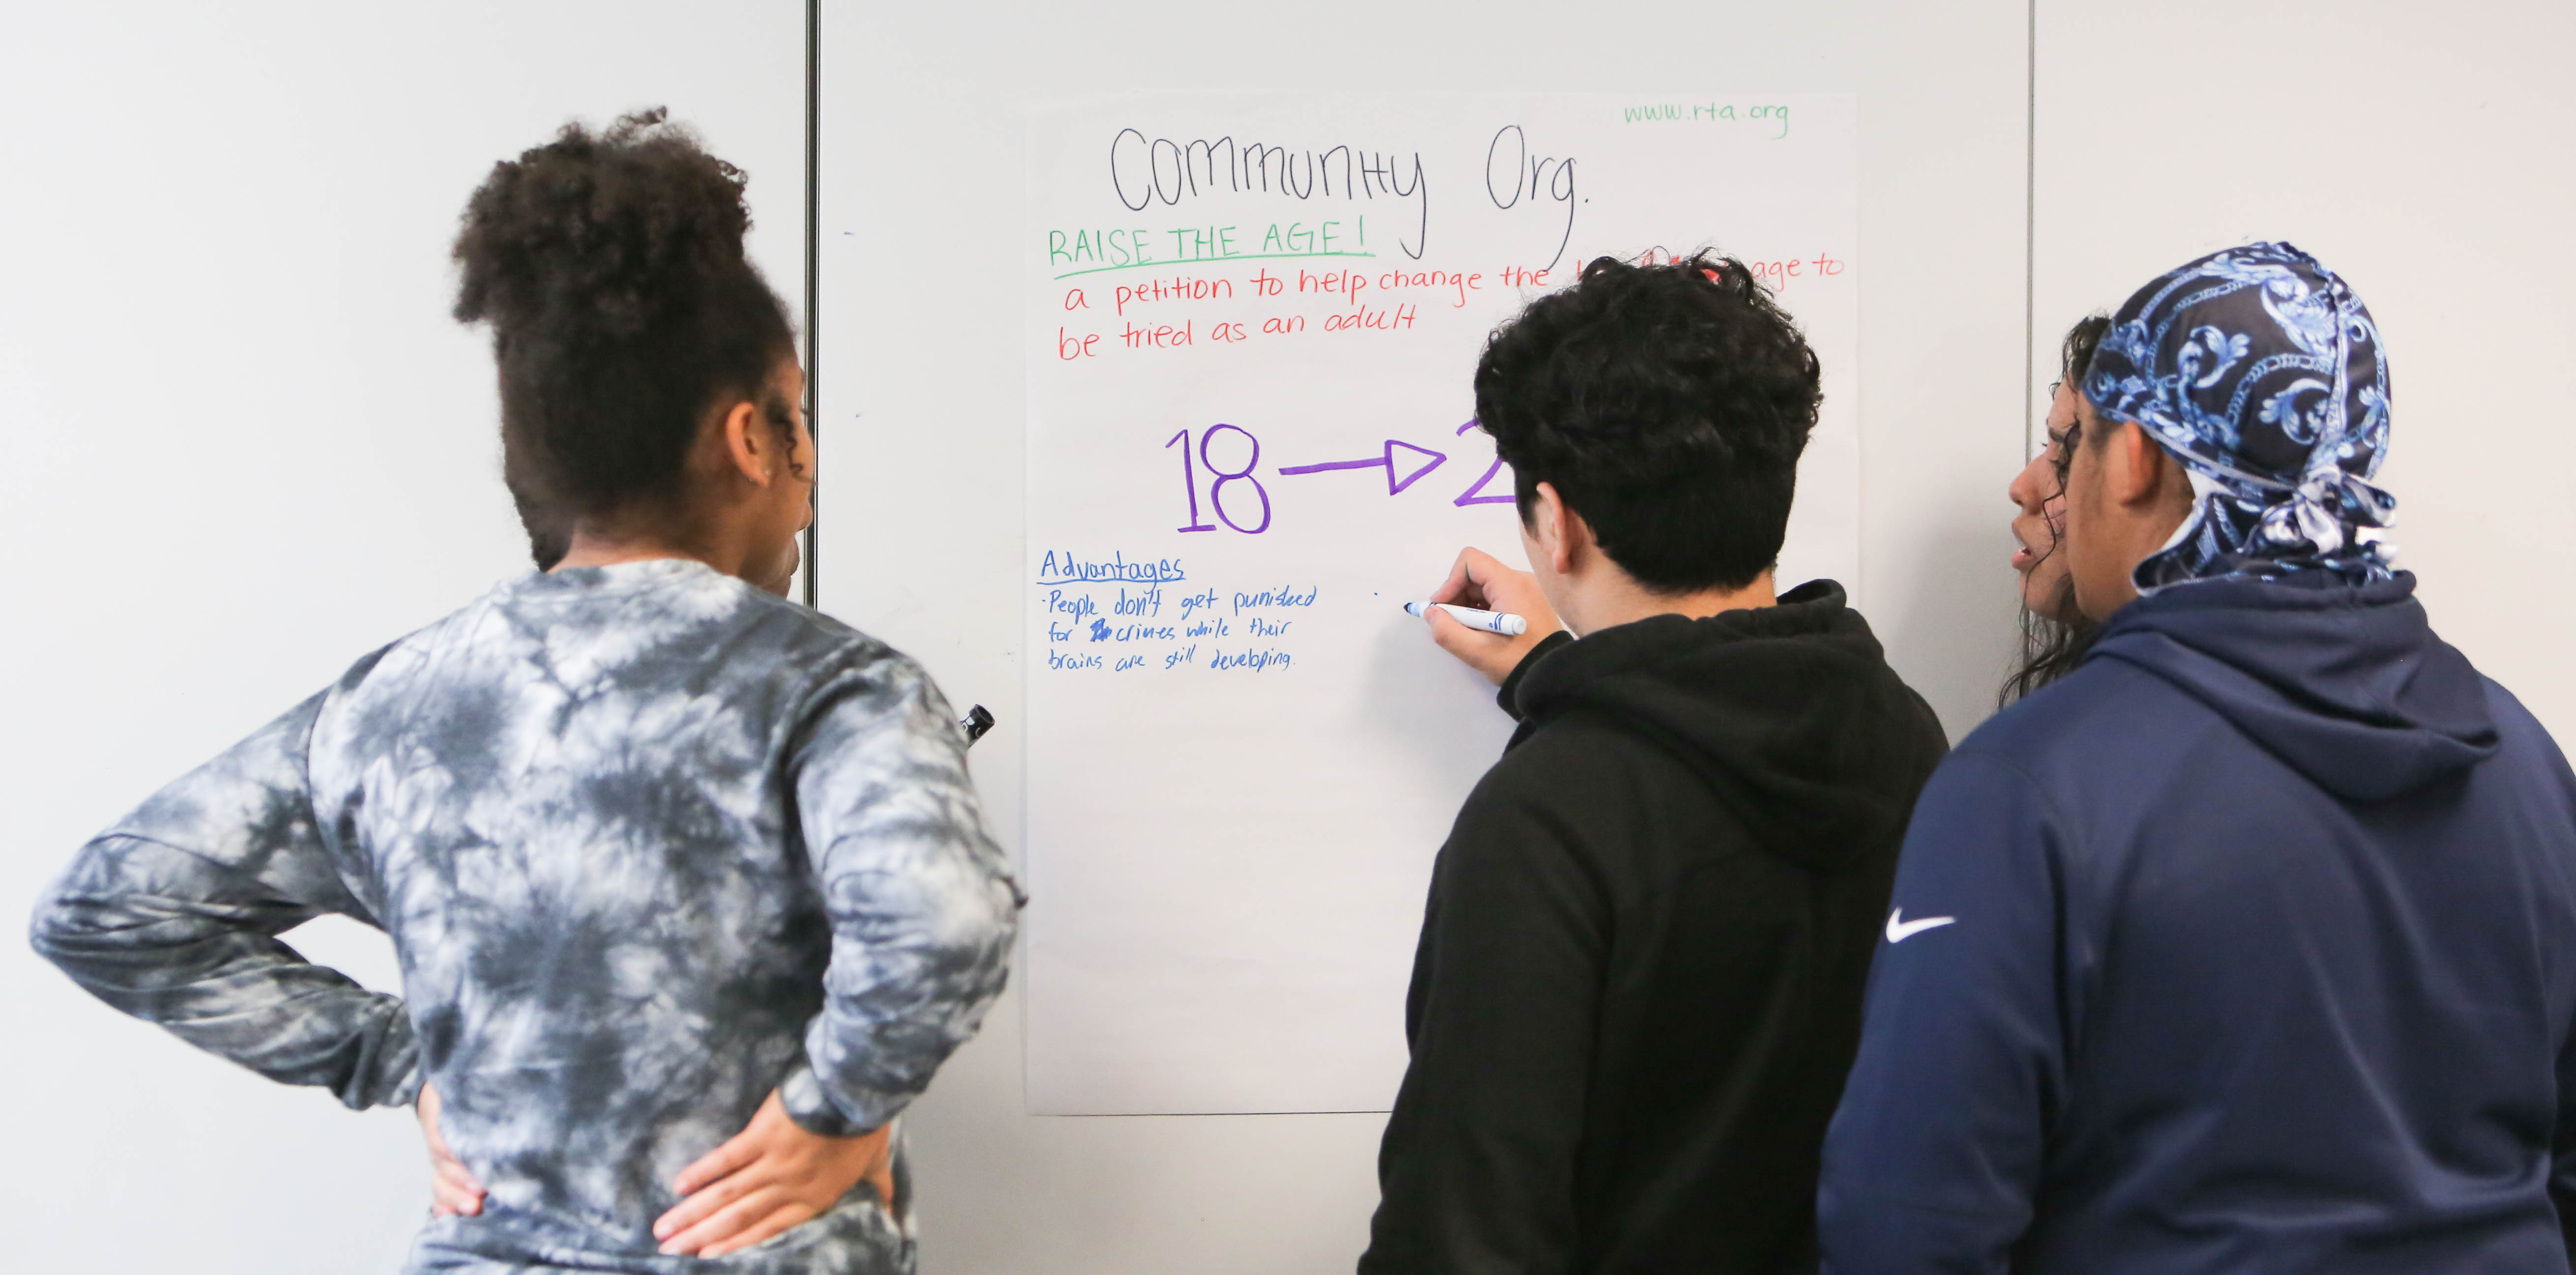 www.rta.org
Community Org.
RAISE THE AGE!
a petition to help change the age to
be tried as an adult
18 → 2
Advantages
· People don't get punished
for crimes while their
brains are still developing.